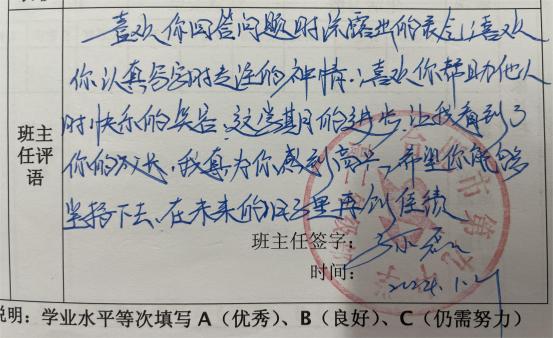 喜欢你回答问题时流露出的灵气,喜欢
你认真写字时专注的神情,喜欢你帮助他人
时快乐的笑容。这学期的进步,让我看到了
你的成长,我真为你感到高兴,希望你能够
坚持下去,在未来的日子里再创佳绩
班主任评语
班主任签字:
时间: 2024.1.2
市第九中学
说明:学业水平等次填写 A(优秀)、B(良好)、C(仍需努力)